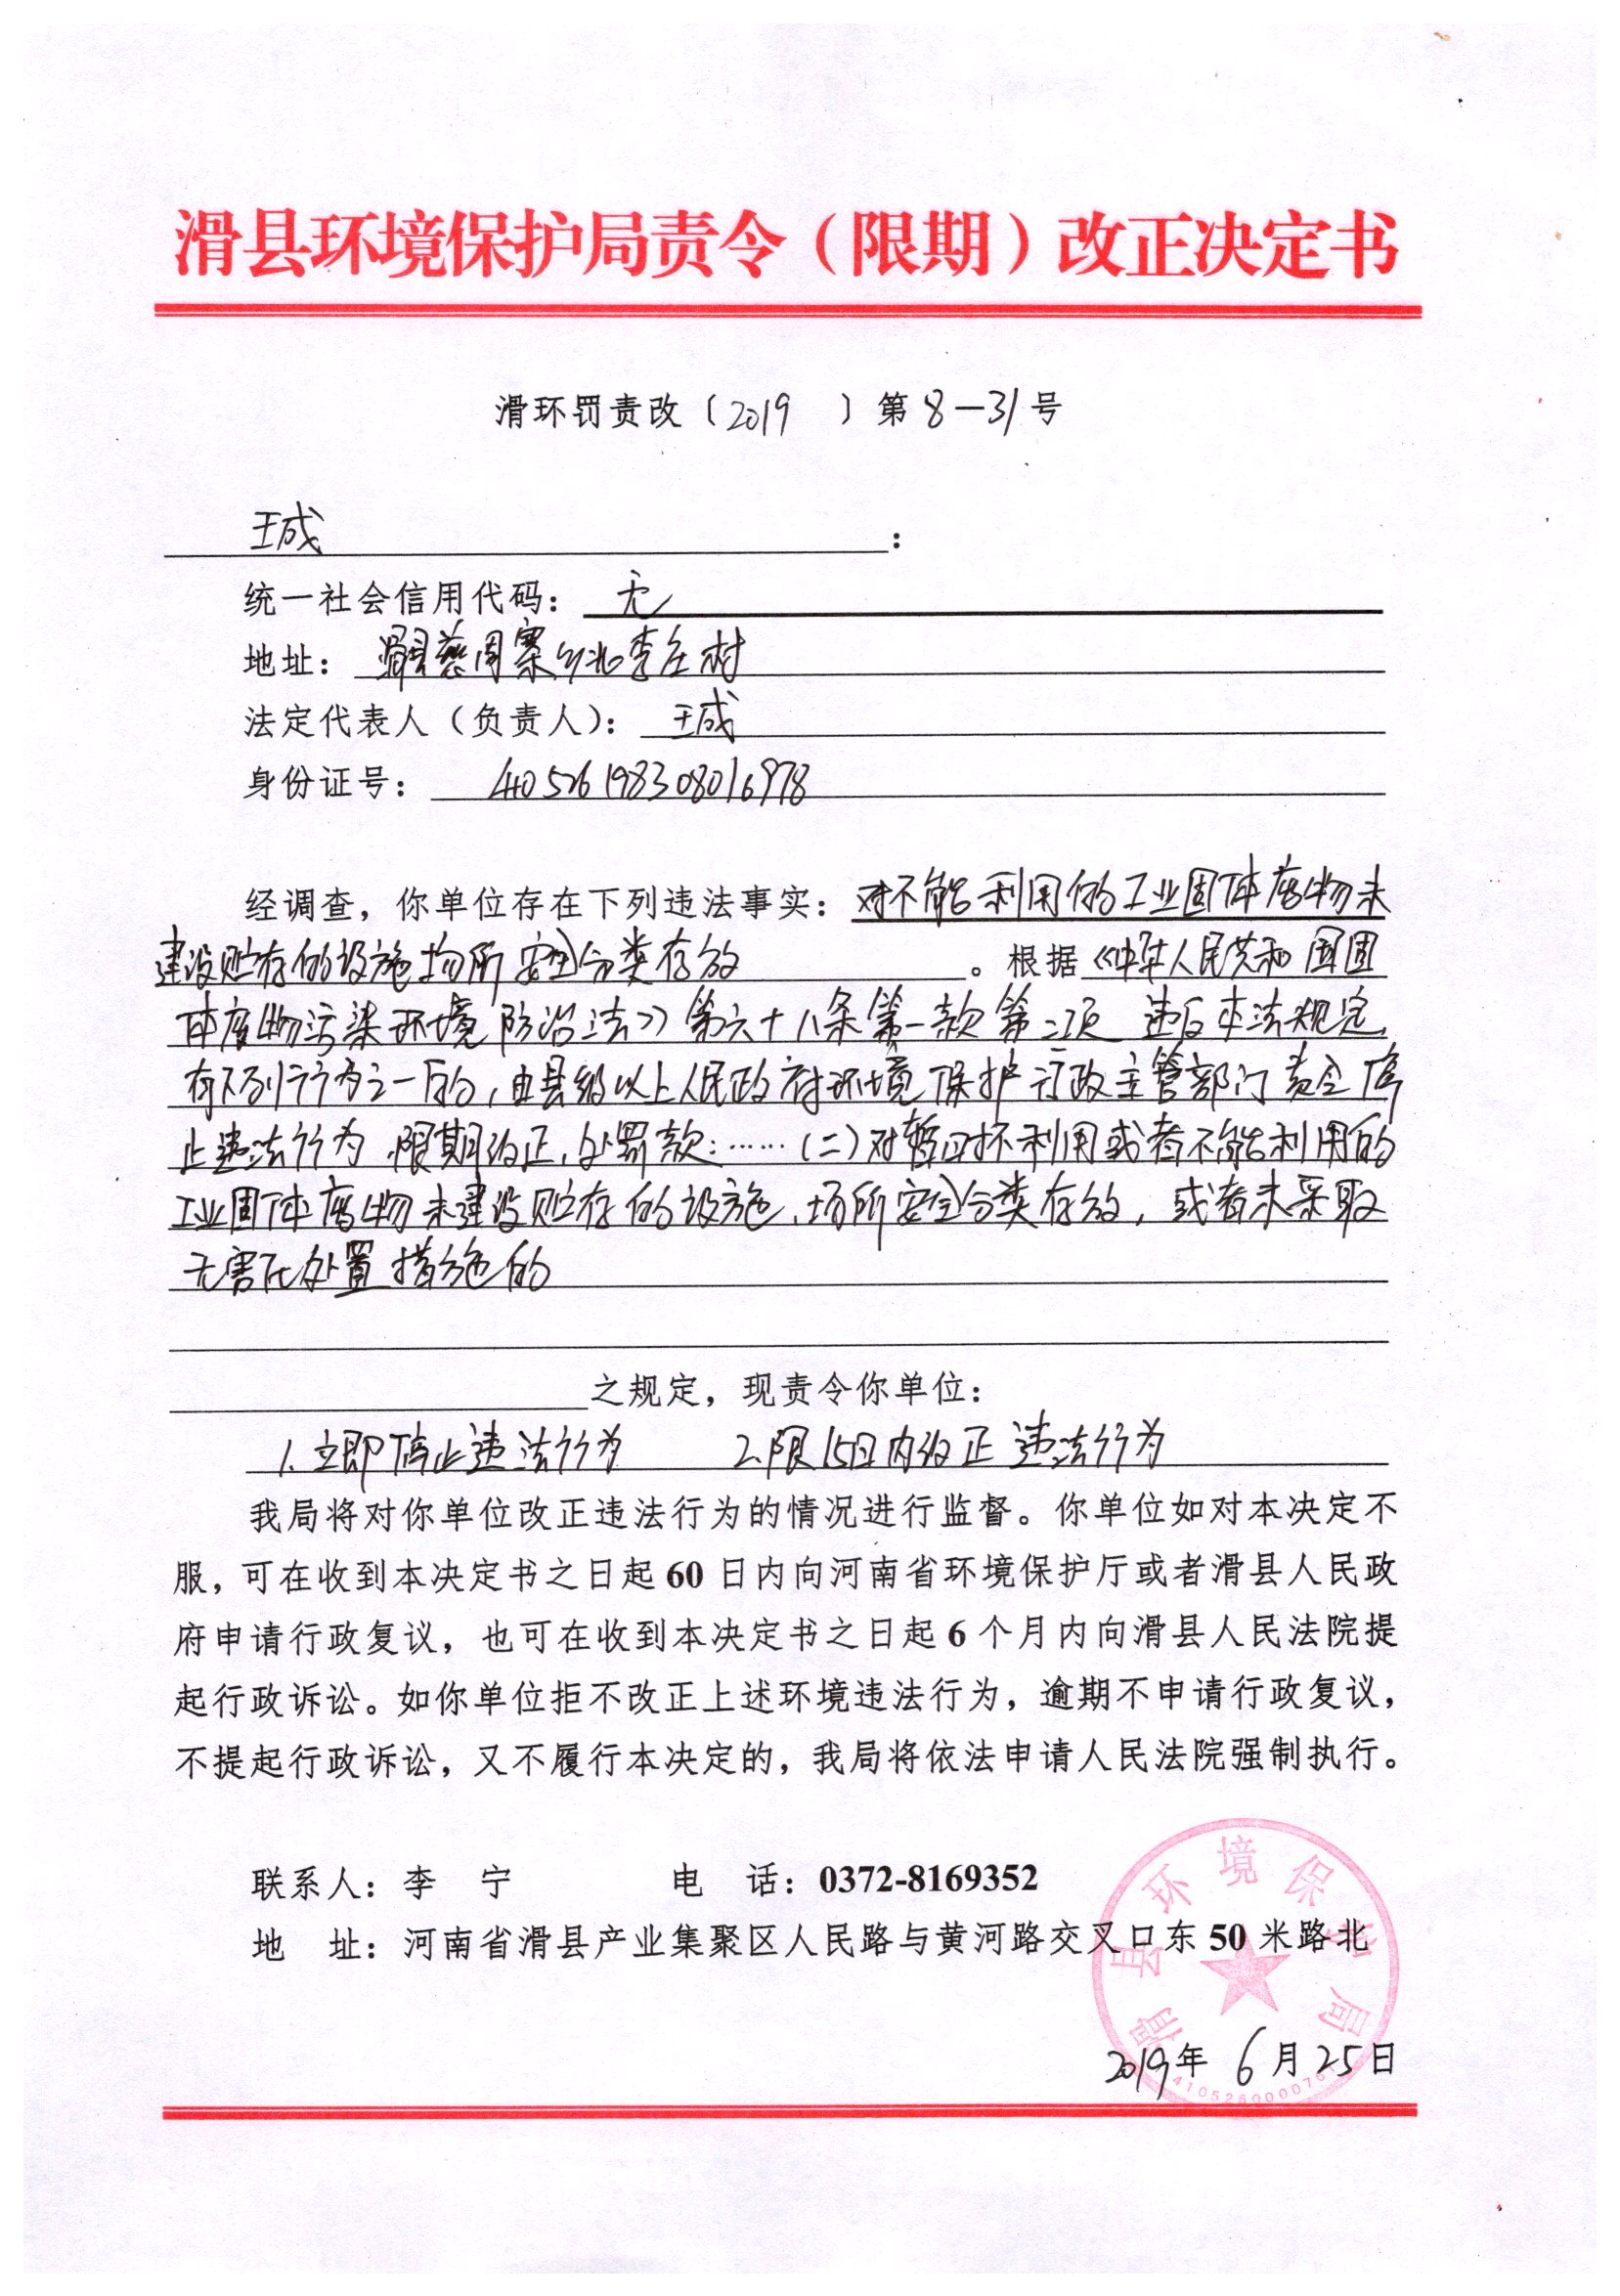 滑县环境保护局责令（限期）改正决定书
滑环罚责改〔2019 〕第8-31号
王成：
统一社会信用代码：无
地址：滑县慈周寨乡北李庄村
法定代表人（负责人）：王成
身份证号：410526198308016978
经调查，你单位存在下列违法事实：对不能利用的工业固体废物未
建设贮存的设施场所安全分类存放。根据《中华人民共和国固
体废物污染环境防治法》第六十八条第一款第二项 违反本法规定,
有下列行为之一的，由县级以上人民政府环境保护行政主管部门责令停
止违法行为、限期改正、处罚款：……（二）对暂时不利用或者不能利用的
工业固体废物未建设贮存的设施、场所安全分类存放，或者未采取
无害化处置措施的
之规定，现责令你单位：
1.立即停止违法行为 2.限15日内改正违法行为
我局将对你单位改正违法行为的情况进行监督。你单位如对本决定不
服，可在收到本决定书之日起60日内向河南省环境保护厅或者滑县人民政
府申请行政复议，也可在收到本决定书之日起6个月内向滑县人民法院提
起行政诉讼。如你单位拒不改正上述环境违法行为，逾期不申请行政复议，
不提起行政诉讼，又不履行本决定的，我局将依法申请人民法院强制执行。
联系人：李 宁 电 话：0372-8169352
地 址：河南省滑县产业集聚区人民路与黄河路交叉口东50米路北
滑县环境保护局
2019年6月25日